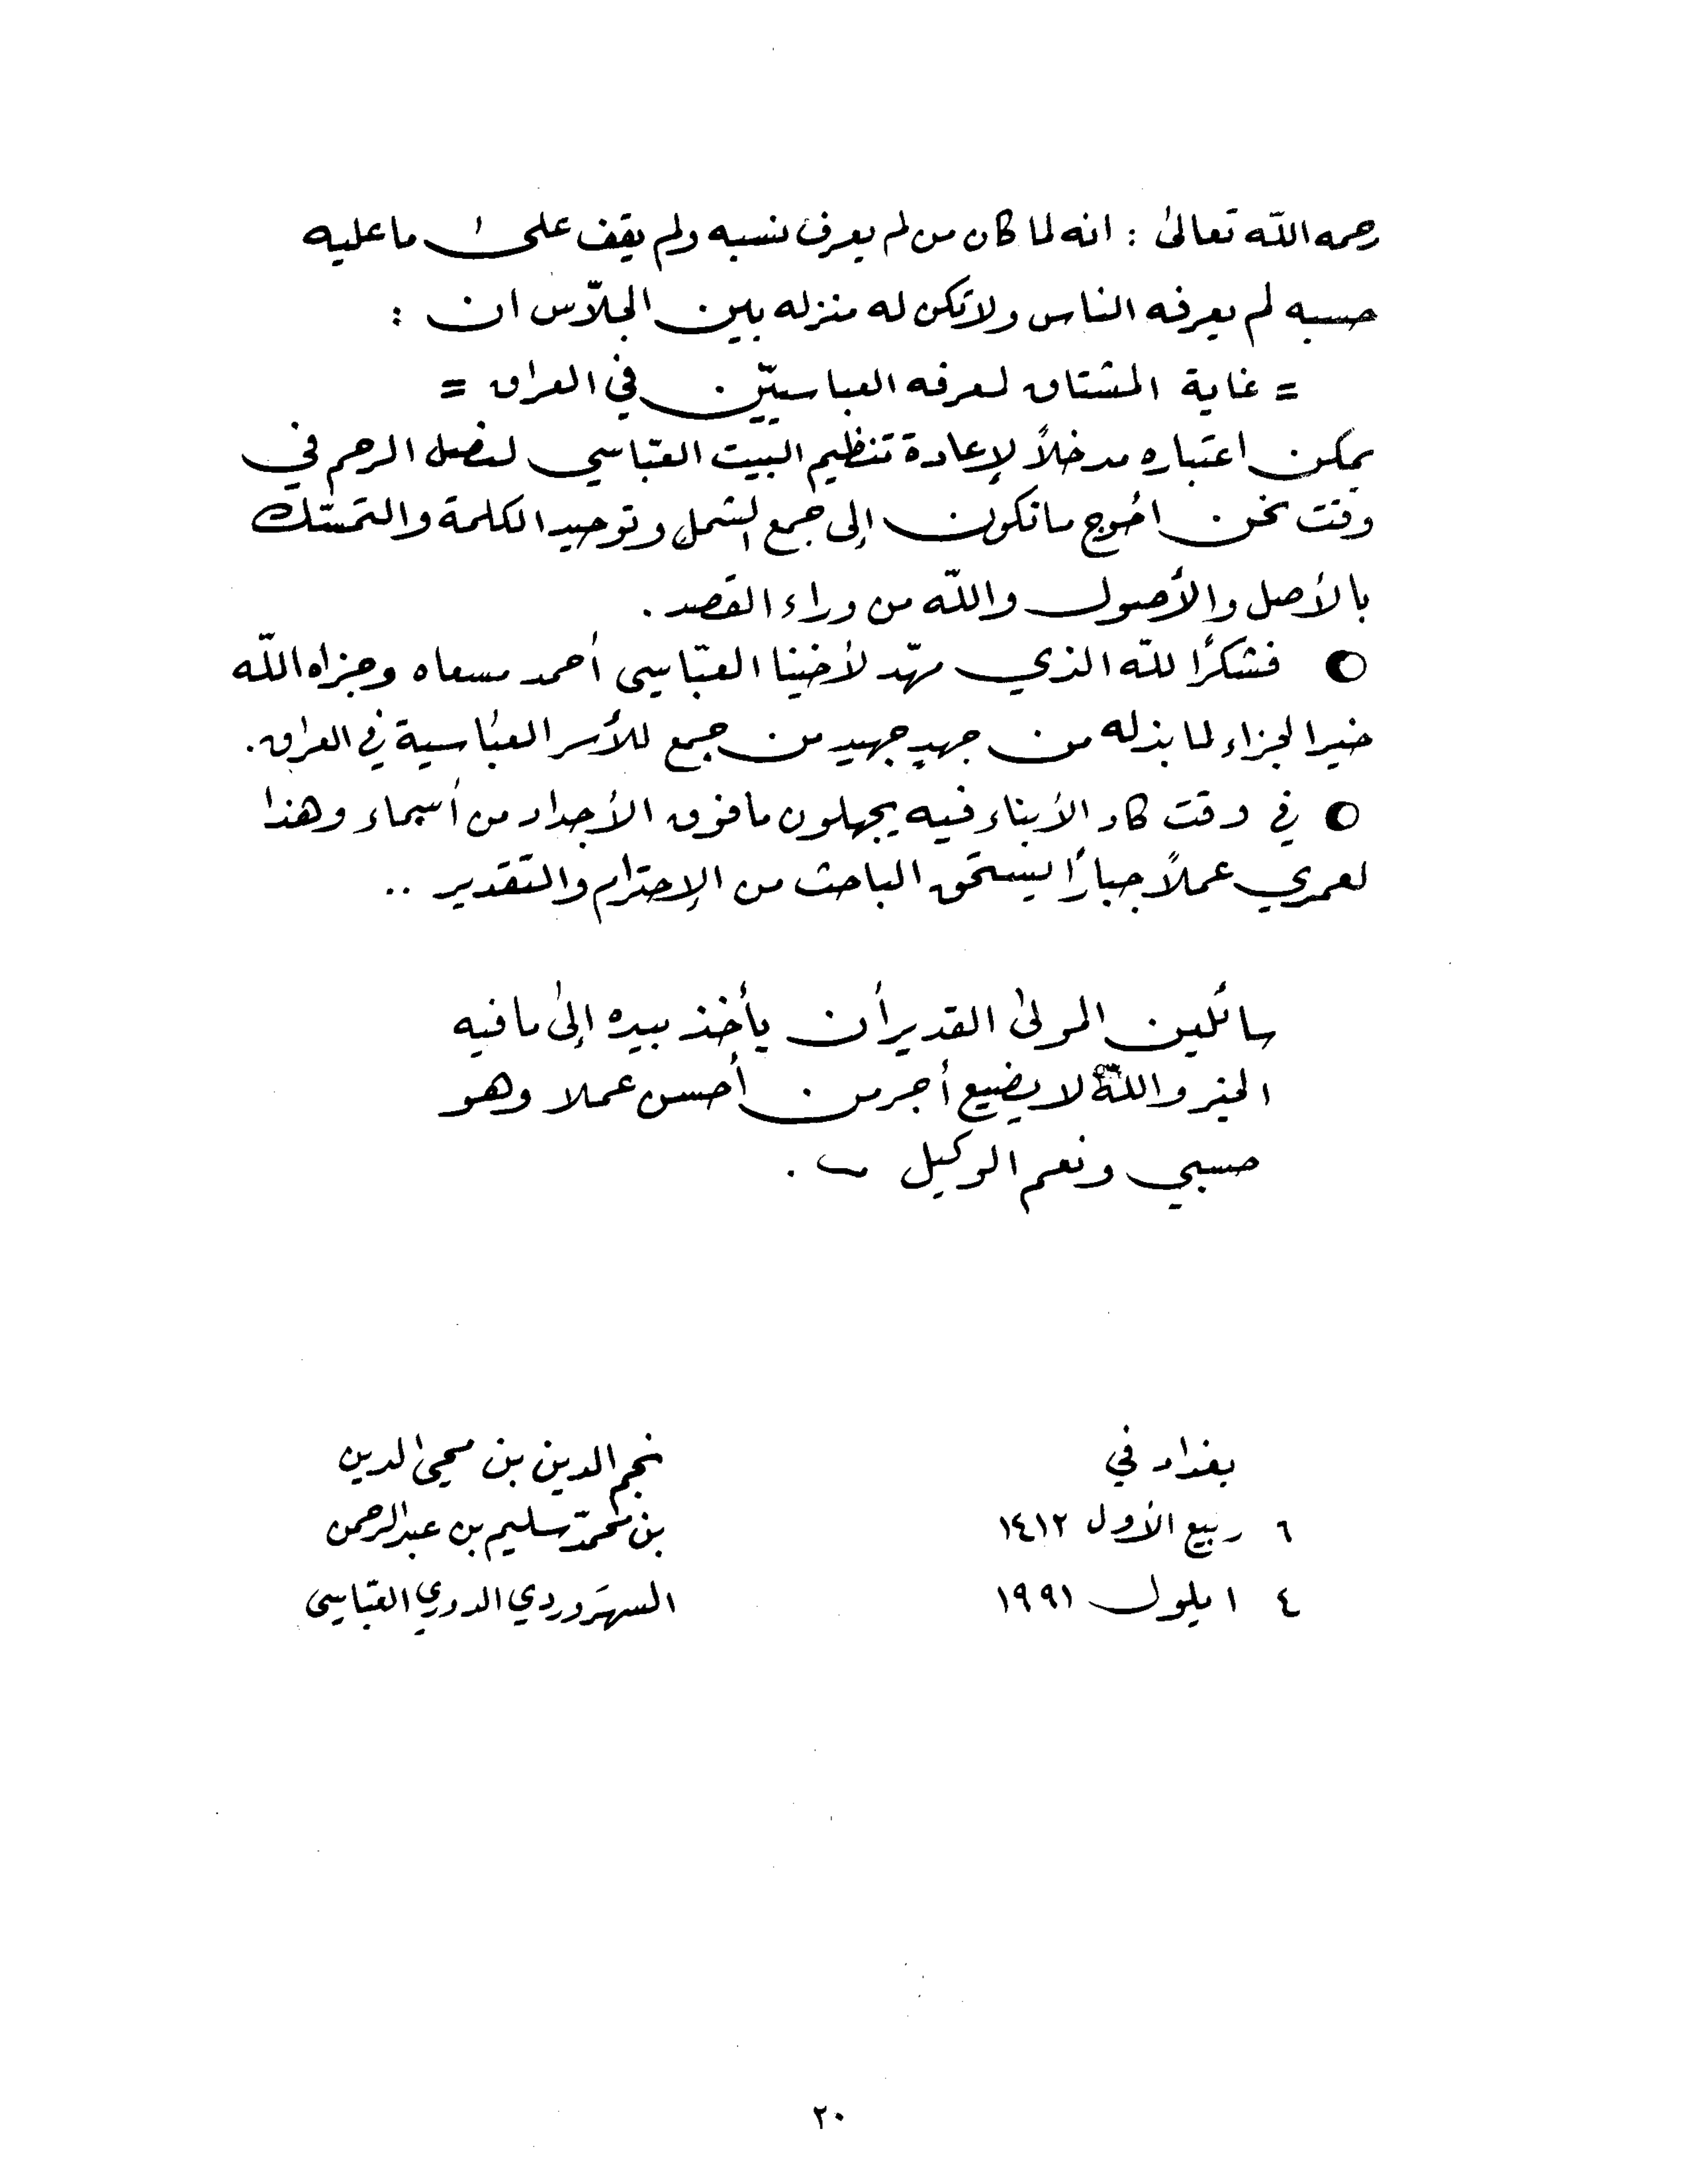 رحمه الله تعالىٰ : انه لما كان من لم يعرف نسبه ولم يقف علىٰ ما عليه
حسبه لم يعرفه الناس ولا تكن له منزله بين الجلّاس ان :
= غاية المشتاق لمعرفه العباسيّين في العراق =
يمكن اعتباره مدخلاً لإعادة تنظيم البيت العبّاسي لفضل الرحم في
وقت نحن احُوج ما نكون إلى جمع الشمل وتوحيد الكلمة والتمسّك
بالأصل والأصول والله من وراء القصد .
● فشكرًا لله الذي مهّد لأخينا العبّاسي أحمد مسعاه وجزاه الله
خير الجزاء لما بذله من جهدٍ جهيد من جمع للأسر العبّاسية في العراق .
● في وقت كاد الأبناء فيه يجهلون ما فوق الأجداد من أسماء وهذا
لعمري عملاً جبارًا يستحق الباحث من الإحترام والتقدير ..
سائلين المولىٰ القدير أن يأخذ بيده إلىٰ ما فيه
الخير والله لا يضيع أجر من أحسن عملا وهو
حسبي ونعم الوكيل .
بغداد في
٦ ربيع الأول ١٤١٢
٤ ايلول ١٩٩١
نجم الدين بن محيي الدين
بن محمّد سليم بن عبد الرحمن
السهَروردي الدوري العبّاسي
٢٠